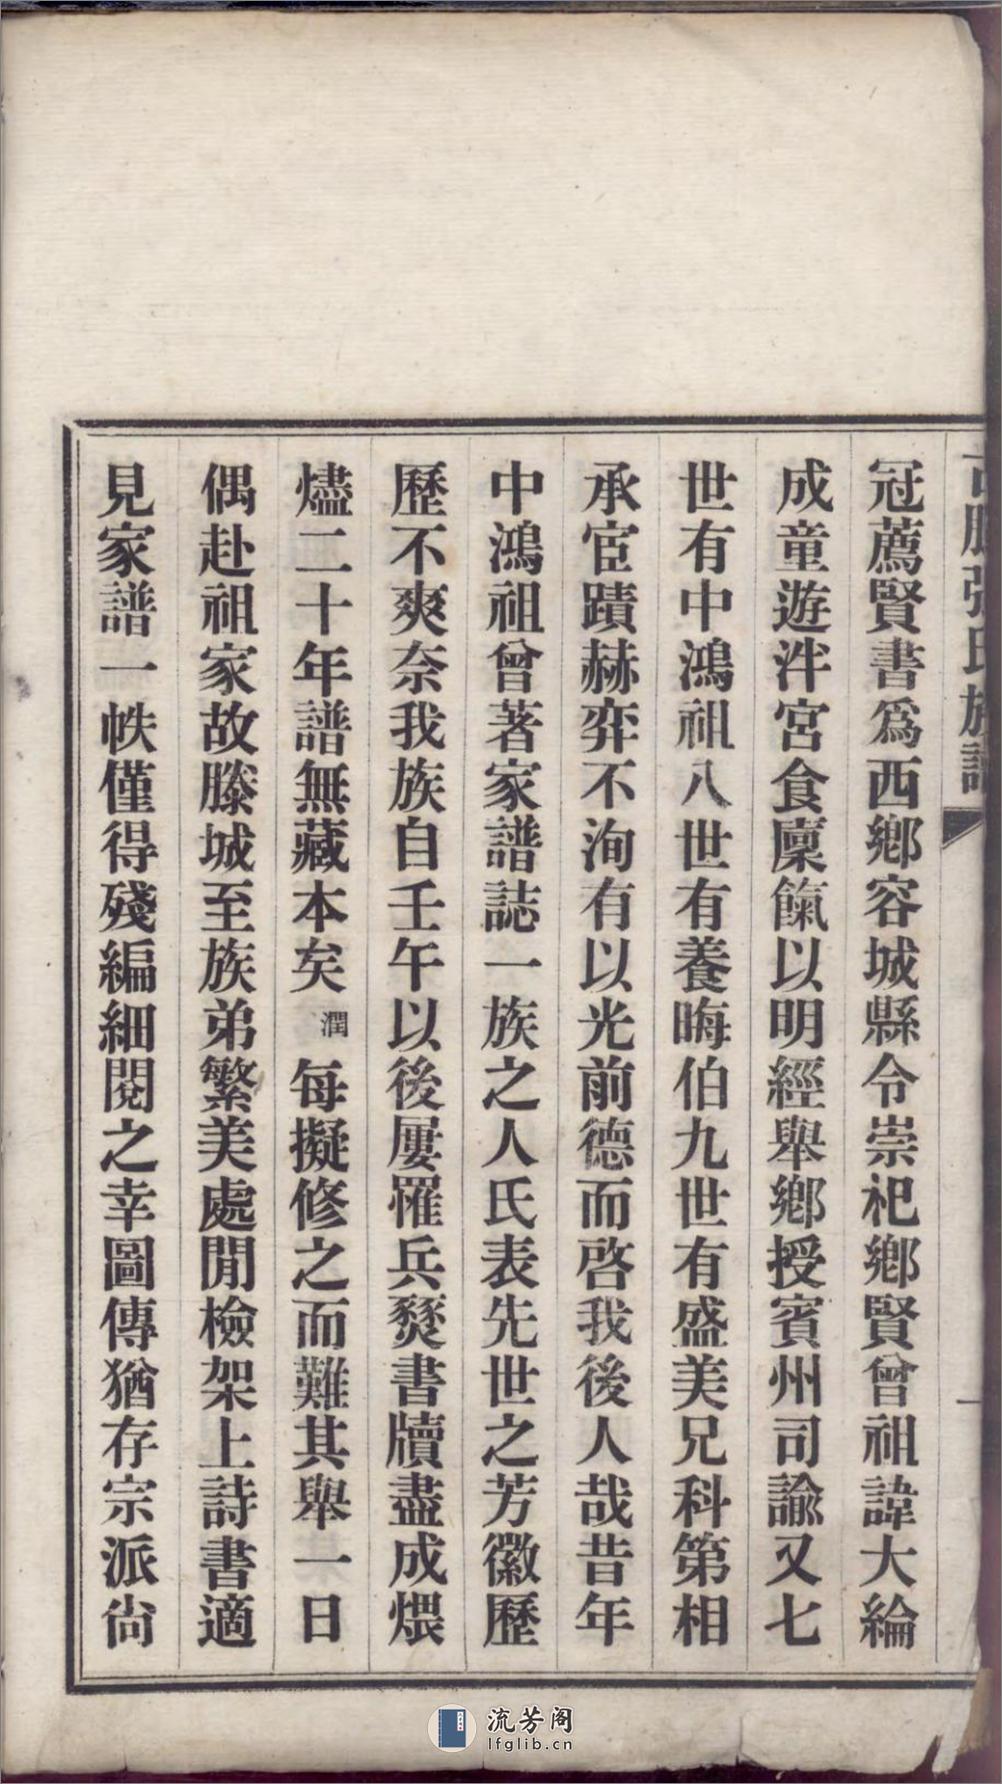 張氏族譜
冠薦賢書為西鄉容城縣令崇祀鄉賢曾祖諱大綸
成童遊泮宮食廩餼以明經舉鄉授賓州司諭又七
世有中鴻祖八世有養晦伯九世有盛美兄科第相
承宦蹟赫弈不洵有以光前德而啓我後人哉昔年
中鴻祖曾著家譜誌一族之人氏表先世之芳徽歷
歷不爽奈我族自壬午以後屢罹兵燹書牘盡成煨
燼二十年譜無藏本矣潤每擬修之而難其舉一日
偶赴祖家故滕城至族弟繁美處閒檢架上詩書適
見家譜一帙僅得殘編細閱之幸圖傳猶存宗派尙
流芳阁
lfglib.cn